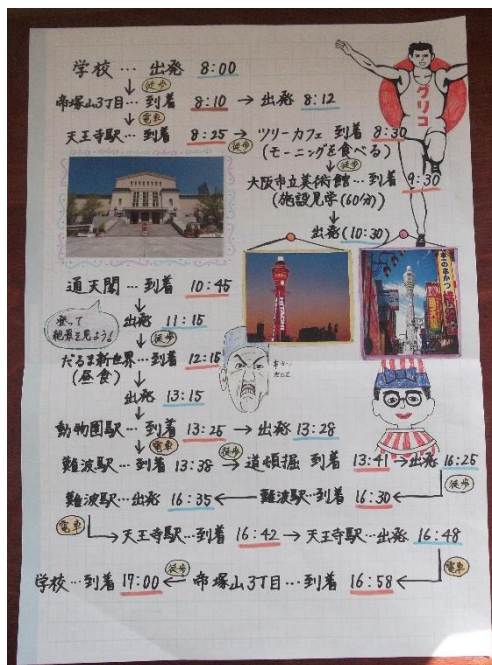 学校… 出発 8:00
↓ 徒歩
帝塚山3丁目… 到着 8:10 → 出発 8:12
↓ 電車
天王寺駅… 到着 8:25 → 徒歩 ツリーカフェ 到着 8:30
(モーニングを食べる)
↓ 徒歩
大阪市立美術館… 到着 9:30
(施設見学(60分))
↓
出発(10:30)
グリコ
通天閣… 到着 10:45
↓
登って絶景を見よう!
出発 11:15
↓ 徒歩
だるま新世界… 到着 12:15
(昼食)
↓
出発 13:15
↓
動物園駅… 到着 13:25 → 出発 13:28
↓ 電車
難波駅… 到着 13:38 → 徒歩 道頓堀 到着 13:41 → 出発 16:25
徒歩
難波駅… 出発 16:35 ← 難波駅… 到着 16:30 ←
電車
→ 天王寺駅… 到着 16:42 → 天王寺駅… 出発 16:48
電車
学校… 到着 17:00 ← 徒歩 帝塚山3丁目… 到着 16:58 ←
HITACHI